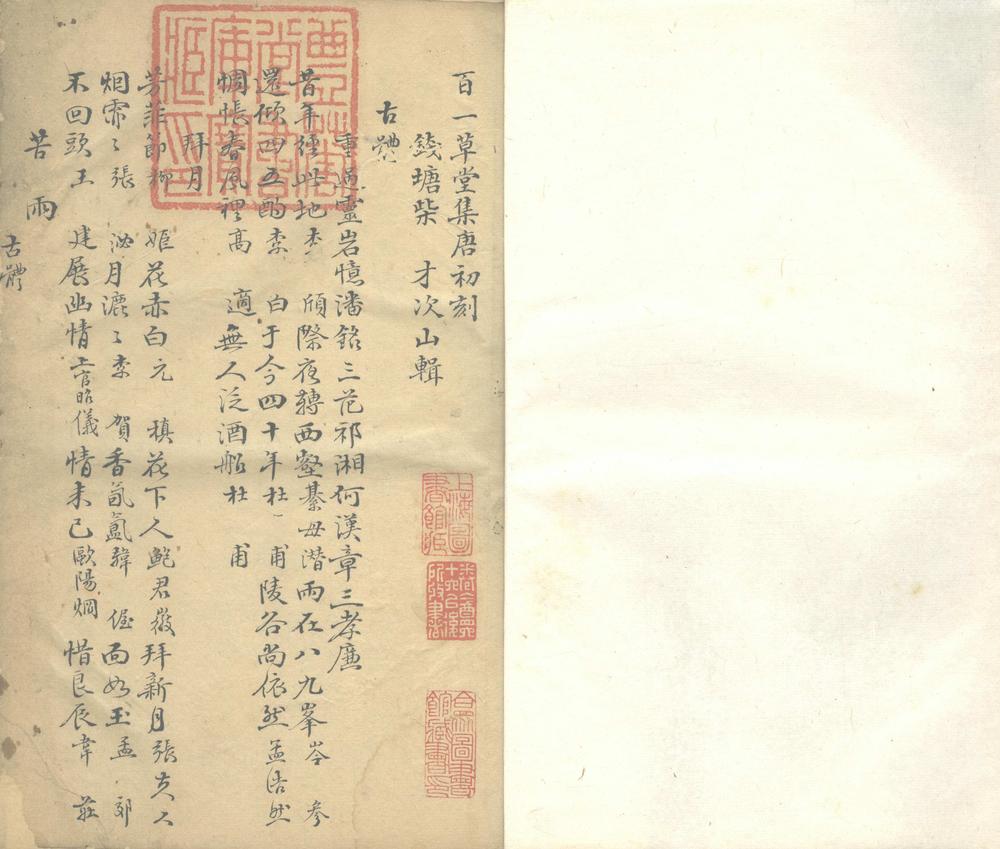 百一草堂集唐初刻
錢塘柴 才次山輯
古體
重過靈岩憶潘銘三范祁湘何漢章三孝廉
昔年經此地李 頎際夜轉西壑綦毋潛雨在八九峯岑 參
還傾四五酌李 白于今四十年杜 甫陵谷尚依然孟浩然
惆悵春風裡高 適無人泛酒船杜 甫
拜月
芳菲節柳 姬花赤白元 稹花下人鮑君徽拜新月張夫人
烟霏〻張 泌月漉〻李 賀香氤氳韓 偓面如玉孟 郊
不回頭王 建展幽情上官昭儀情未已歐陽烱 惜良辰韋 莊
苦雨
古體
上海圖書館藏
合眾圖書館藏書印